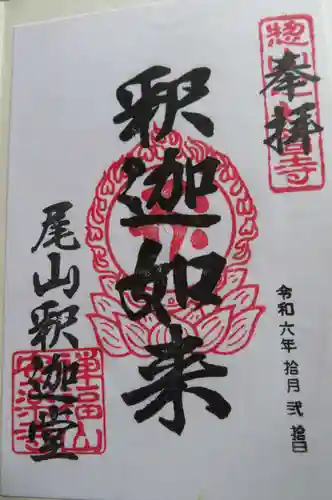 奉拝
釈迦如来
尾山釈迦堂
令和六年拾月弐拾日